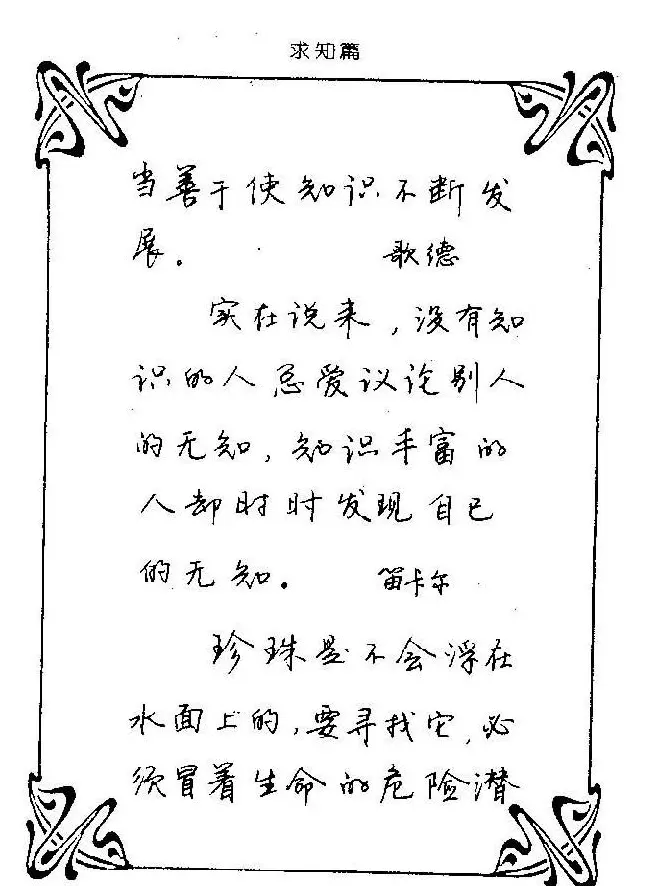 求知篇
当善于使知识不断发
展。 歌德
实在说来，没有知
识的人总爱议论别人
的无知，知识丰富的
人却时时发现自己
的无知。 笛卡尔
珍珠是不会浮在
水面上的，要寻找它，必
须冒着生命的危险潜